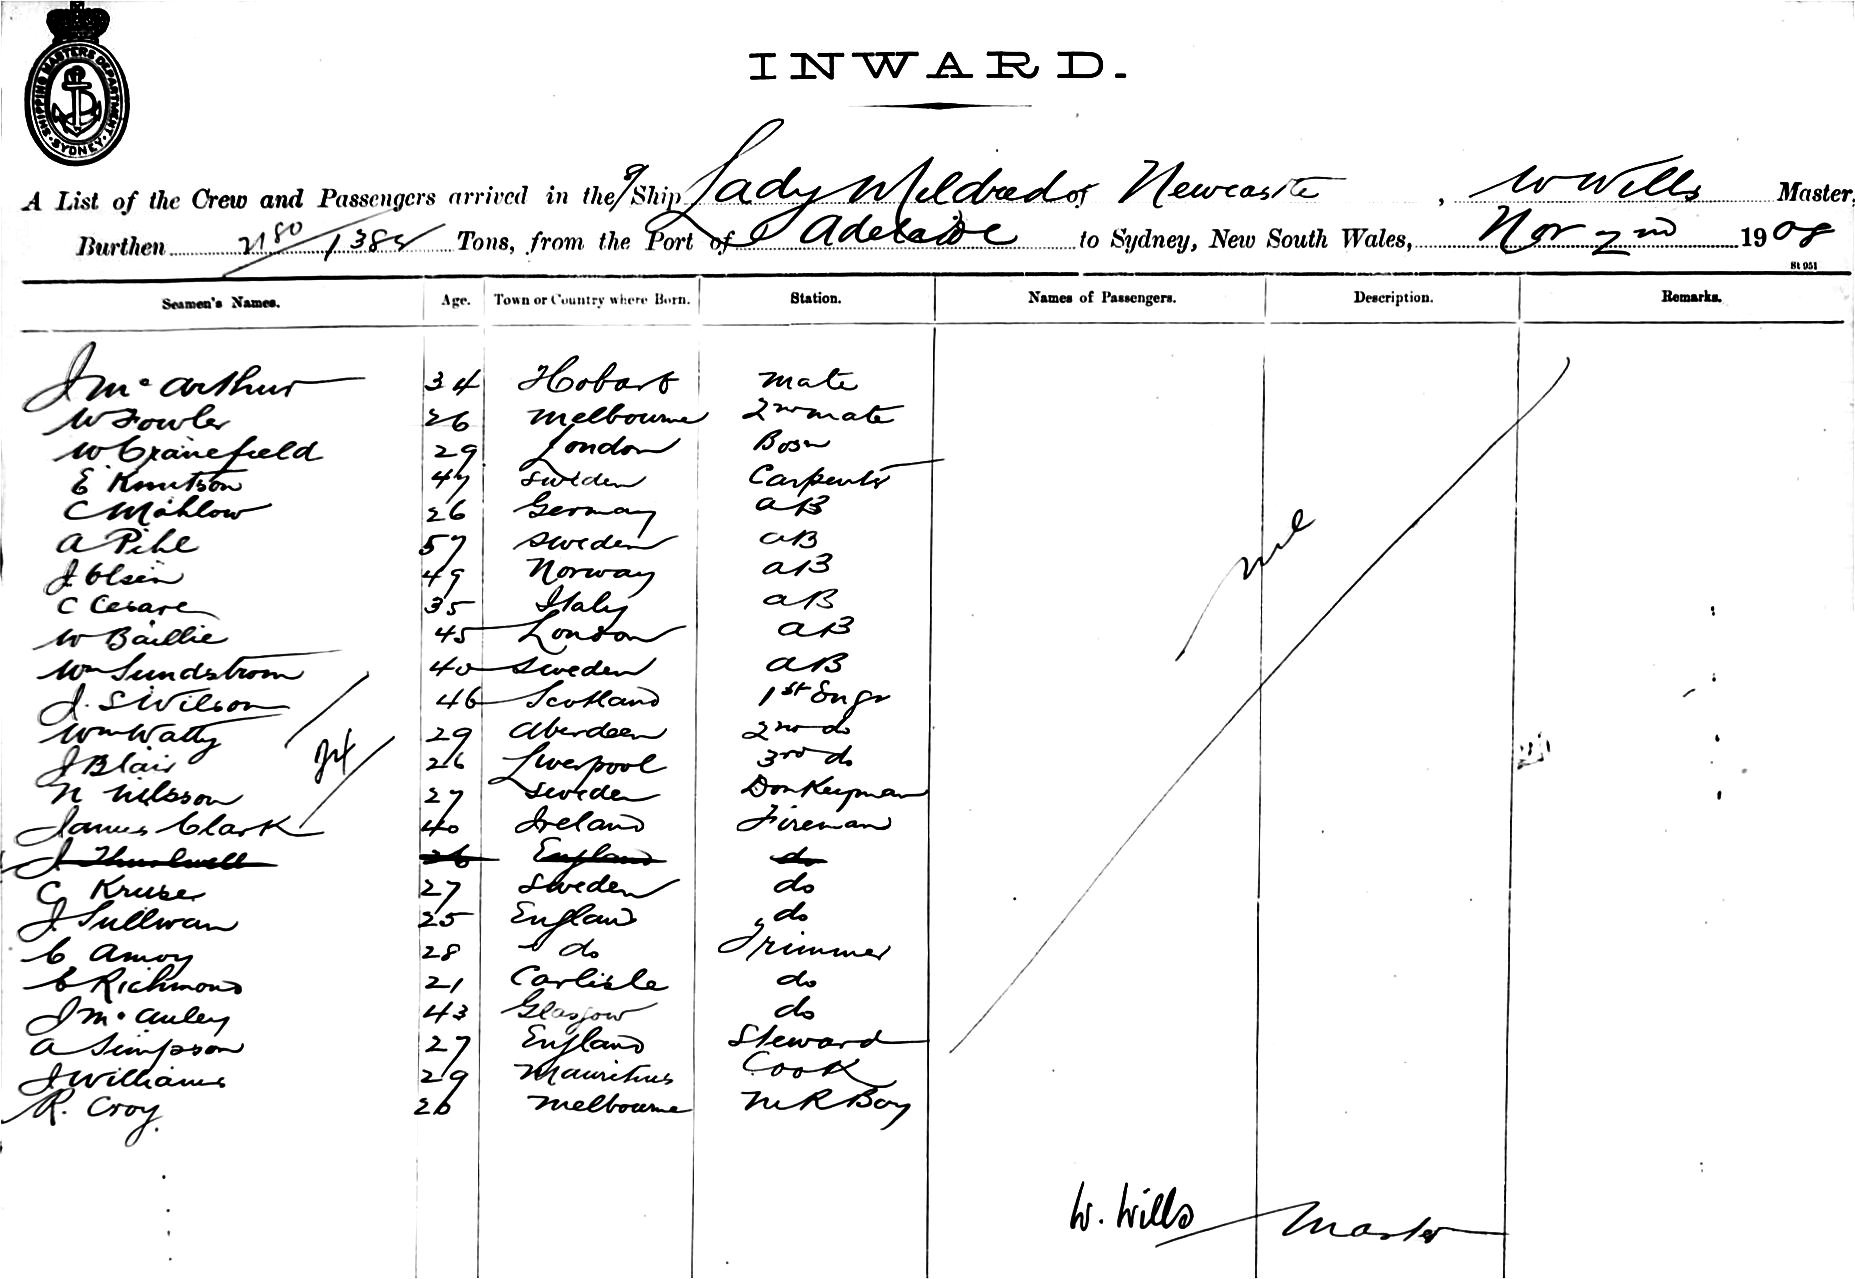 SHIPPING MASTERS DEPARTMENT
SYDNEY
INWARD.
A List of the Crew and Passengers arrived in the S/Ship Lady Mildred of Newcastle, W Wills Master,
Burthen 2180/1384 Tons, from the Port of Adelaide to Sydney, New South Wales, Nov 2nd 1908
St 951
Seamen's Names. Age. Town or Country where Born. Station. Names of Passengers. Description. Remarks.
J McArthur 34 Hobart Mate
W Fowler 26 Melbourne 2nd mate
W Cranefield 29 London Bosn
E Knutson 47 Sweden Carpenter
C Mahlow 26 Germany AB
A Pihl 57 Sweden AB
J Olsen 49 Norway AB
C Cesare 35 Italy AB
W Baillie 45 London AB
Wm Sundstrom 40 Sweden AB
J. S Wilson 46 Scotland 1st Engr
Wm Watty 29 Aberdeen 2nd do
J Blair 26 Liverpool 3rd do
N Nilsson 27 Sweden Donkeyman
James Clark 40 Ireland Fireman
J Thurlwell 26 England do
C Kruse 27 Sweden do
J Sullivan 25 England do
C Amoy 28 do Trimmer
E Richmond 21 Carlisle do
J McAuley 43 Glasgow do
A Simpson 27 England Steward
J Williams 29 Mauritius Cook
R. Croy 20 Melbourne M R Boy
24
nil
W. Wills Master